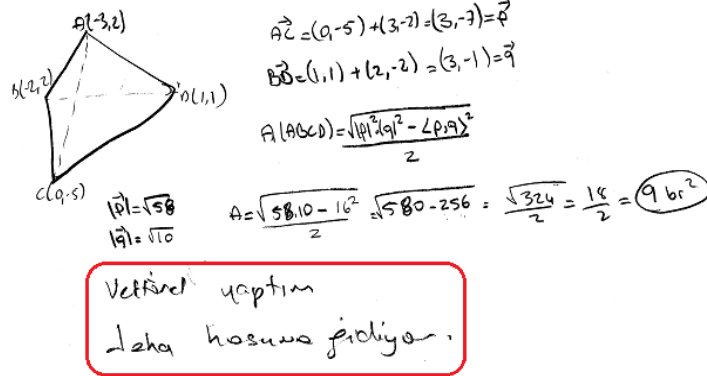 A(-3,2)
B(-2,2)
D(1,1)
C(0,-5)
AC⃗ = (0,-5) + (3,-2) = (3,-7) = p⃗
BD⃗ = (1,1) + (2,-2) = (3,-1) = q⃗
A(ABCD) = √(|p|²|q|² - <p,q>²) / 2
|p⃗| = √58
|q⃗| = √10
A = √(58.10 - 16²) / 2 = √(580-256) = √324 / 2 = 18 / 2 = 9 br²
Vektörel yaptım
daha hoşuma gidiyor.